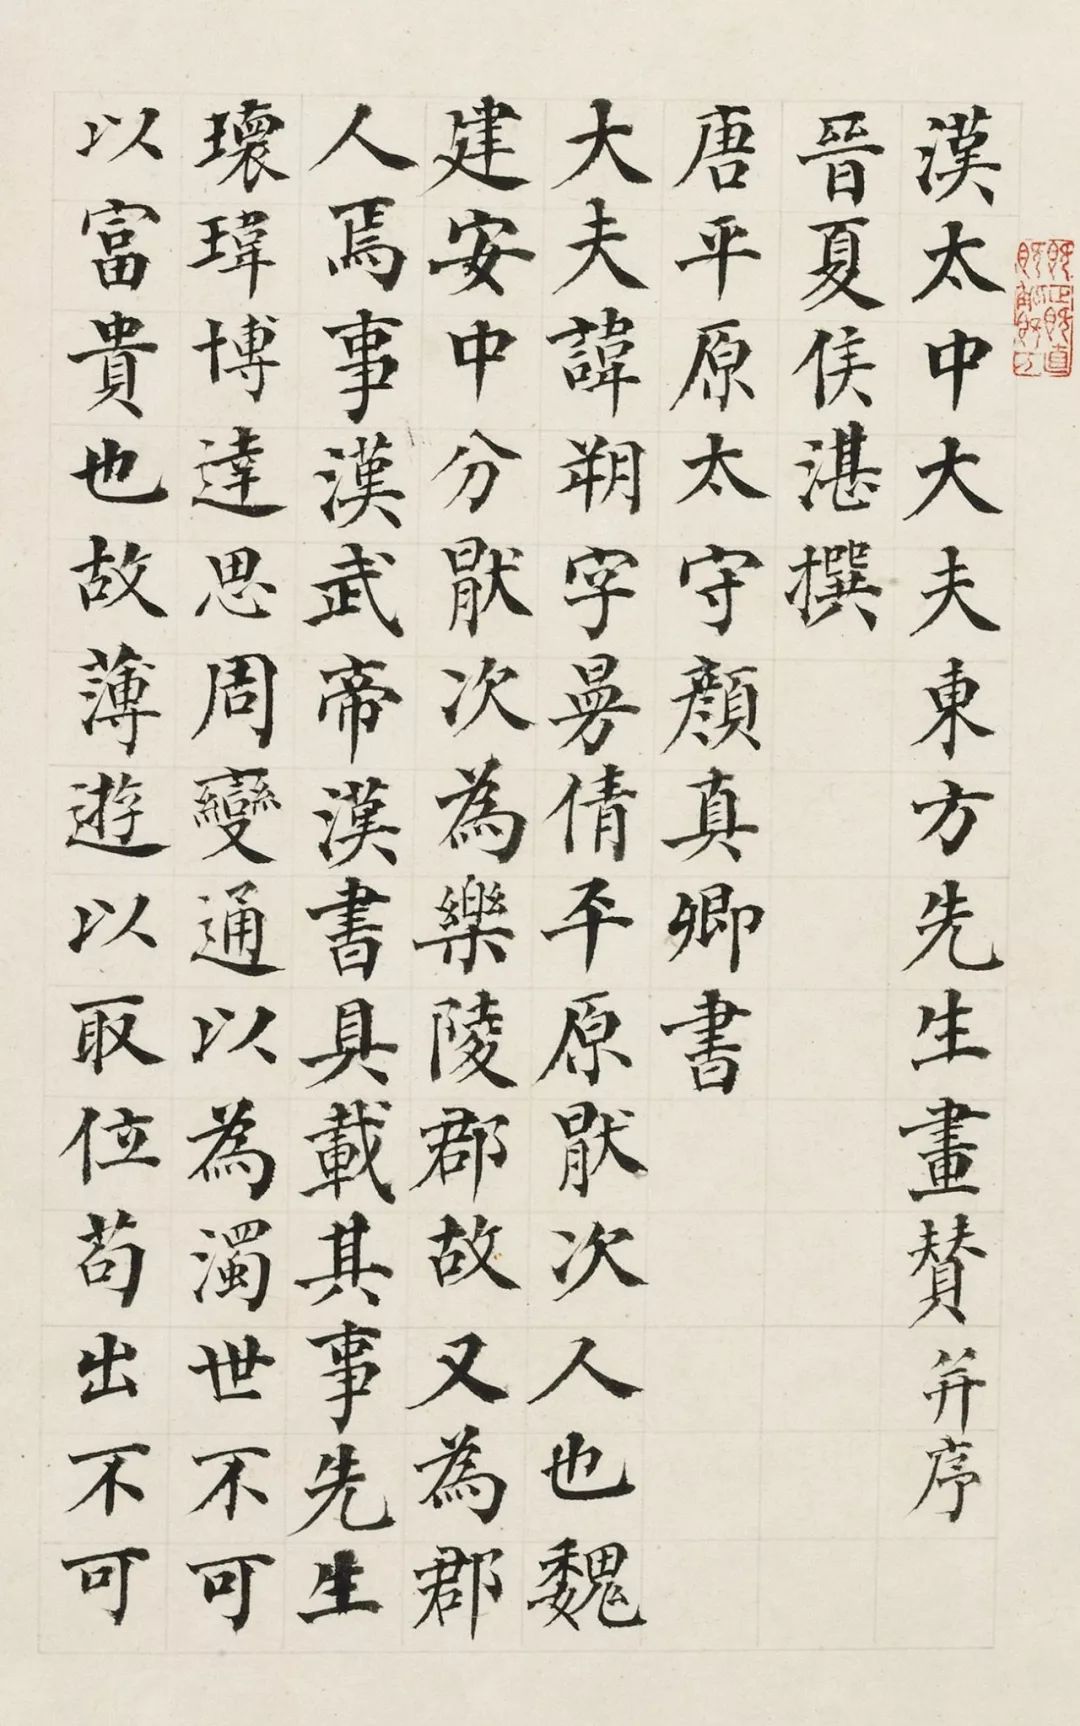 漢太中大夫東方先生畫贊并序
晉夏侯湛撰
唐平原太守顏真卿書
大夫諱朔字曼倩平原厭次人也魏
建安中分厭次為樂陵郡故又為郡
人焉事漢武帝漢書具載其事先生
瓌瑋博達思周變通以為濁世不可
以富貴也故薄遊以取位苟出不可